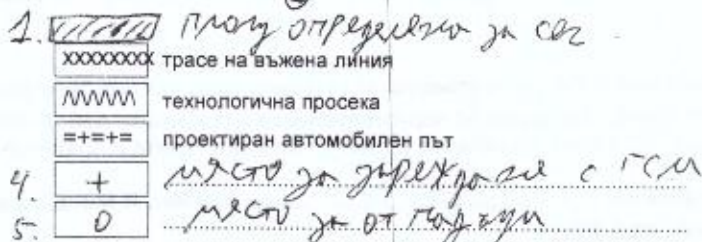 1. площ определена за сеч
xxxxxxxx трасе на въжена линия
технологична просека
=+=+= проектиран автомобилен път
4. + място за зареждане с ГСМ
5. 0 място за отпадъци